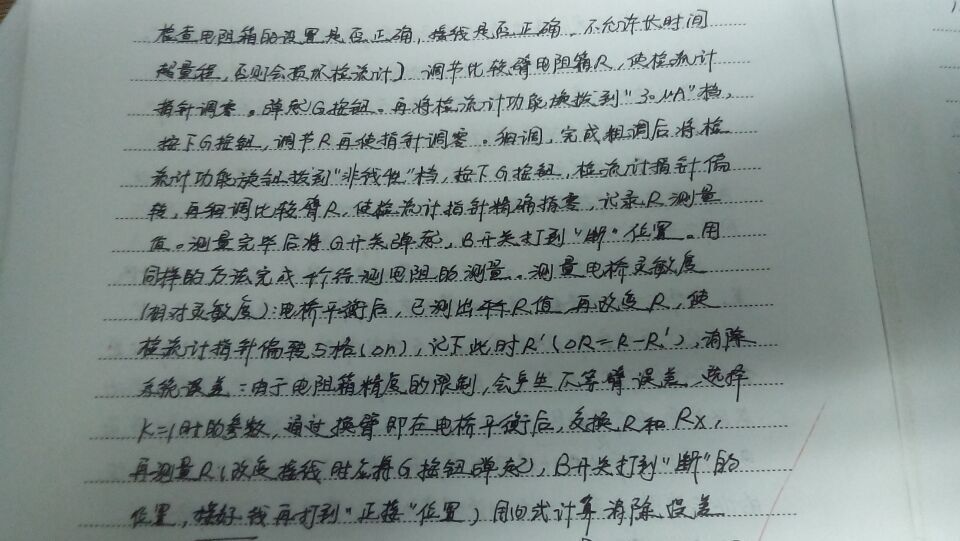 检查电阻箱的设置是否正确，接线是否正确，不允许长时间
超量程，否则会损坏检流计】 调节比较臂电阻箱R，使检流计
指针调零。弹起G按钮。再将检流计功能旋拨到“30μA”档，
按下G按钮，调节R再使指针调零。细调，完成粗调后将检
流计功能旋钮拨到“非线性”档，按下G按钮，检流计指针偏
转，再细调比较臂R，使检流计指针精确指零，记录R测量
值。测量完毕后将G开关弹起，B开关打到“断”位置。用
同样的方法完成个待测电阻的测量。测量电桥灵敏度
(相对灵敏度)：电桥平衡后，已测出R值，再改变R，使
检流计指针偏转5格(Δn)，记下此时R'(ΔR=R-R')，消除
系统误差：由于电阻箱精度的限制，会产生不等臂误差，选择
K=1时的参数，通过换臂即在电桥平衡后，交换R和Rx，
再测量R(改变接线时应将G按钮弹起)，B开关打到“断”的
位置，接好线再打到“正接”位置)用公式计算消除误差